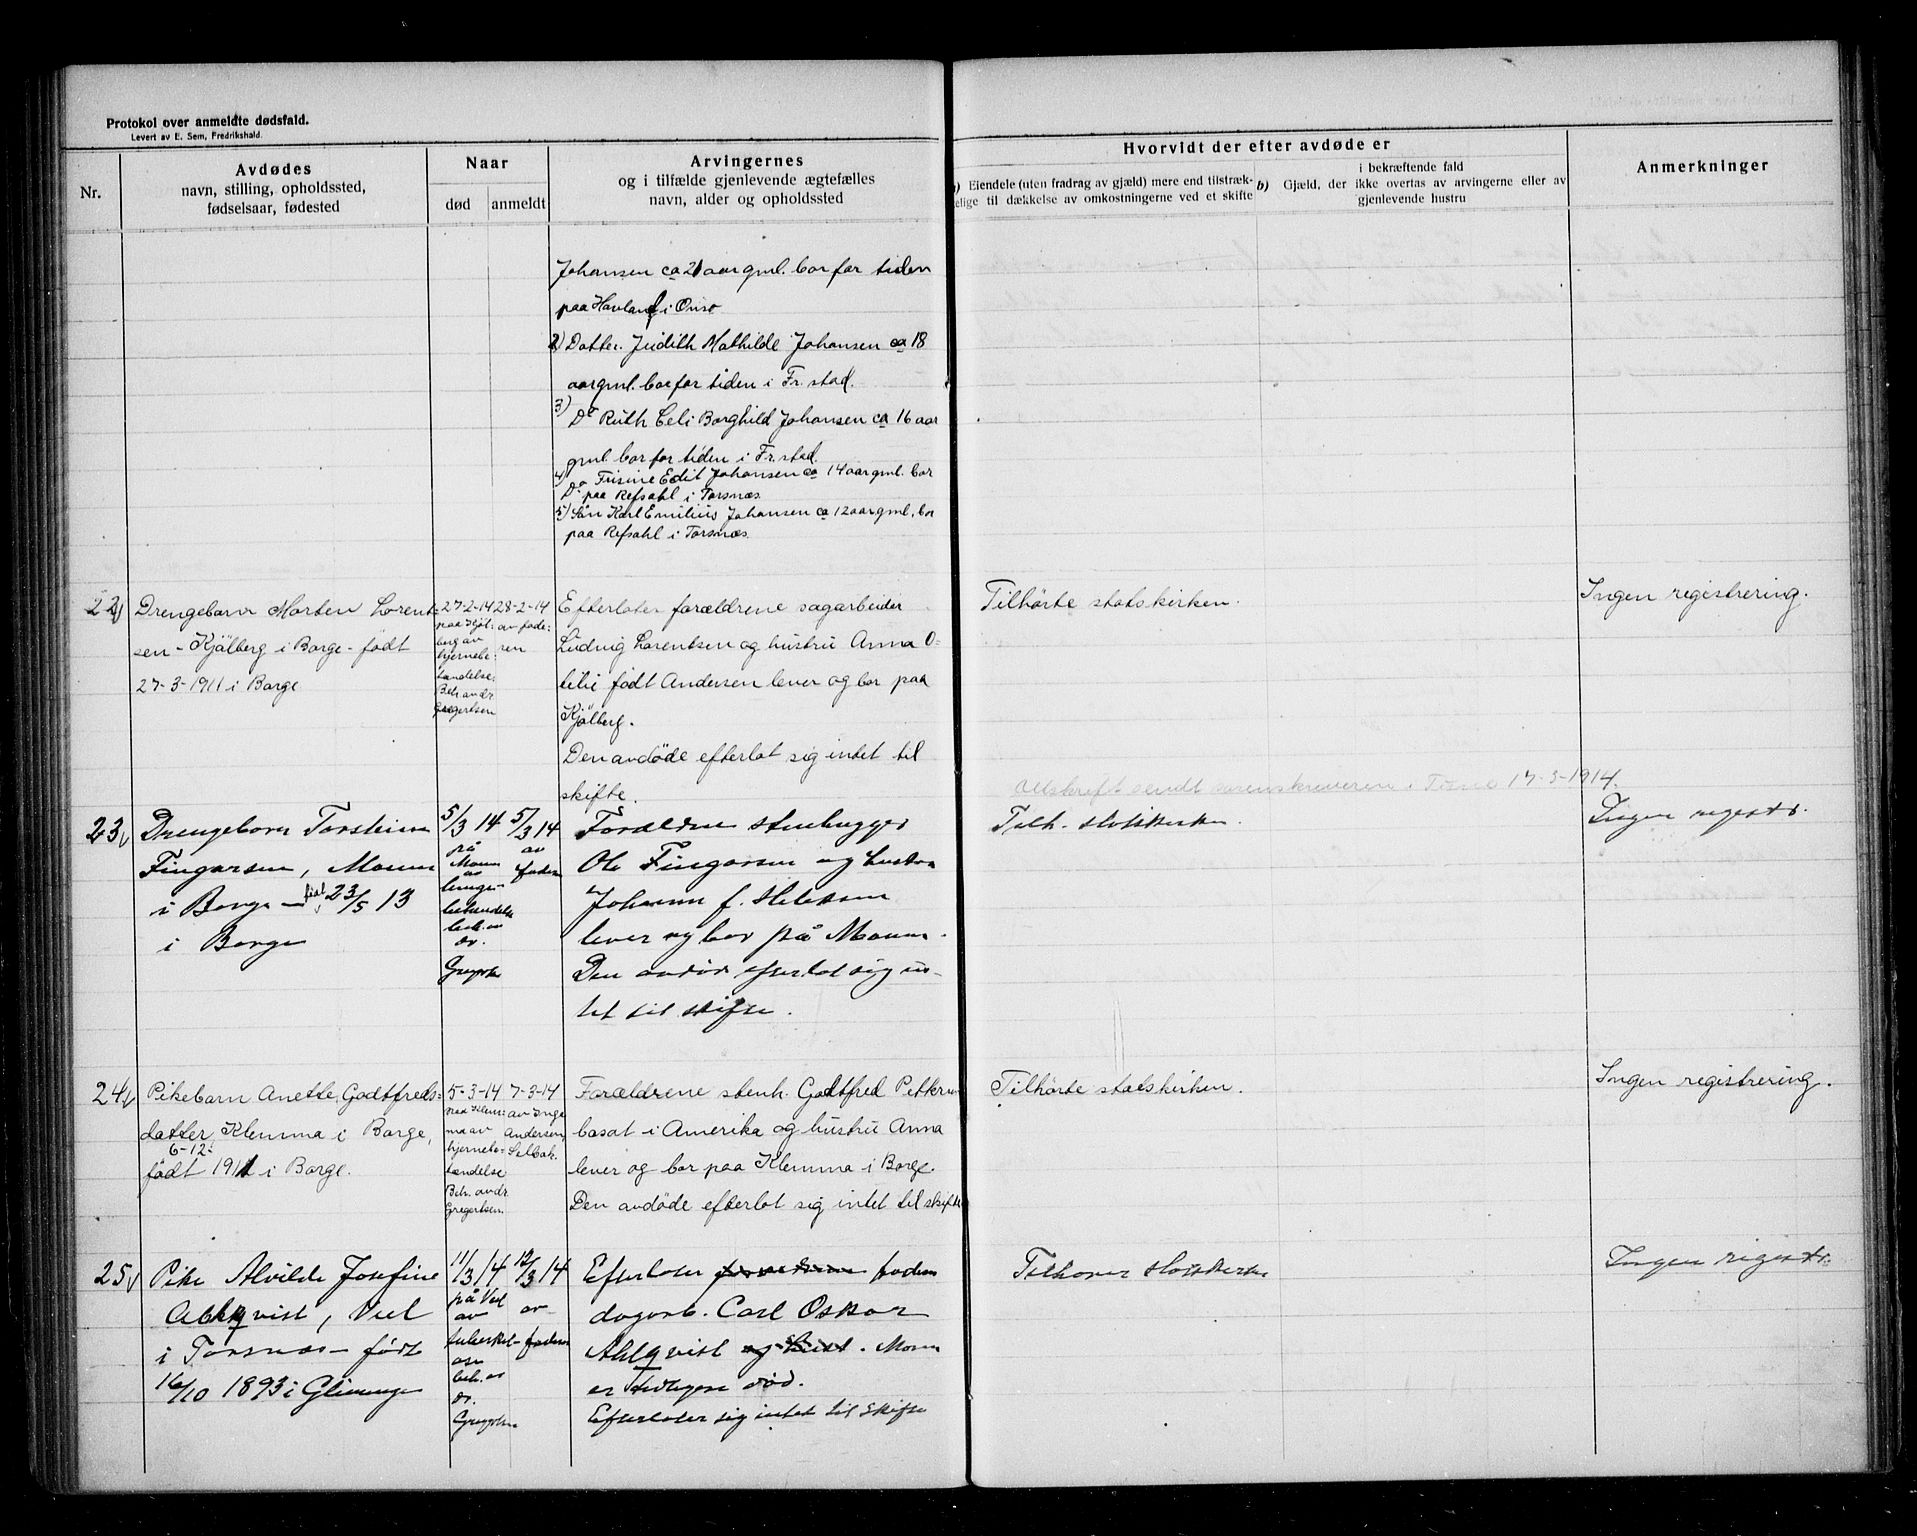 Protokol over anmeldte dødsfald.
Levert av E. Sem, Fredrikshald.
Nr.
Avdødes
navn, stilling, opholdssted,
fødselsaar, fødested
Naar
død
anmeldt
Arvingernes
og i tilfælde gjenlevende ægtefælles
navn, alder og opholdssted
Hvorvidt der efter avdøde er
a) Eiendele (uten fradrag av gjæld) mere end tilstræk-
kelige til dækkelse av omkostningerne ved et skifte
b)
i bekræftende fald
Gjæld, der ikke overtas av arvingerne eller av
gjenlevende hustru
Anmerkninger
Johansen ca 21 aar gml. bor for tiden
paa Havland i Onsø
2) Datter. Judith Mathilde Johansen ca 18
aar gml. bor for tiden i Fr. stad.
3) Do Ruth Celi Borghild Johansen ca 16 aar
gml. bor for tiden i Fr. stad.
4) Do Edit Johansen ca 14 aar gml. bor
paa Refsahl i Torsnæs
5) Søn Karl Emilius Johansen ca 12 aar gml. bor
paa Refsahl i Torsnæs
22
Drengebarn Morten Lorent-
sen - Kjølberg i Borge - født
27-3-1911 i Borge
27-2-14
paa Kjøl-
berg av
hjernebe-
tændelse.
Beh. av dr.
Gregertsen
28-2-14
av fade-
ren
Efterlater forældrene sagarbeider
Ludvig Lorentsen og hustru Anna O-
tilie født Andersen lever og bor paa
Kjølberg.
Den avdøde efterlot sig intet til
skifte.
Tilhørte statskirken.
Ingen registrering.
17-3-1914.
23
Drengebarn Torstein
Fingarsen, Moum
i Borge - født 23/5 13
i Borge
5/3 14
på
Moum
av
lunge-
betændelse
beh. av
dr.
Gregertsen
5/3 14
av
faderen
Forældrene stenhugger
Ole Fingarsen og hustru
Johanne f.
lever og bor på Moum.
Den avdøde efterlot sig in-
tet til skifte.
Tilh. statskirken.
Ingen registr.
24
Pikebarn Anette Godtfreds-
datter, Klemma i Borge,
6-12-
født 1911 i Borge.
5-3-14
paa Klem-
ma av
hjernebe-
tændelse
Beh. av dr.
Gregertsen.
7-3-14
av Inga
Andersen,
Selbak.
Forældrene stenh. Godtfred
bosat i Amerika og hustru Anna
lever og bor paa Klemma i Borge.
Den avdøde efterlot sig intet til skifte
Tilhørte statskirken.
Ingen registrering.
25
Pike Alvilde Josefine
Ahlqvist, Vel
i Torsnæs - født
16/10 1893 i Glimminge
11/3 14
på Vel
av
tuberkul-
ose
beh. av
dr.
Gregertsen
12/3 14
av
faderen
Efterlater forældrene faderen
dagarb. Carl Oskar
Ahlqvist og hust. Moren
er tidligere død.
Efterlater sig intet til skifte
Tilhører statskirken
Ingen registr.